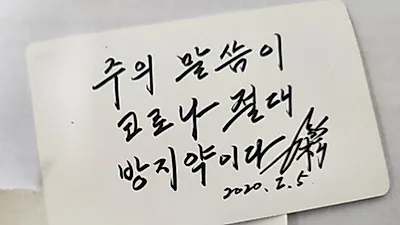 주의 말씀이
코로나 절대
방지약이다
2020. 2. 5.